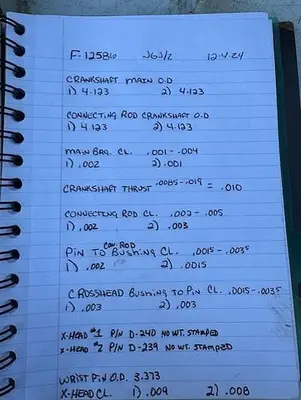 F-12586 JGJ/2 12-4-24
CRANKSHAFT MAIN O.D
1) 4.123 2) 4.123
CONNECTING ROD CRANKSHAFT O.D
1) 4.123 2) 4.123
MAIN BRG. CL. .001-.004
1) .002 2) .001
CRANKSHAFT THRUST .0085-.019 = .010
CONNECTING ROD CL. .002-.005
1) .002 2) .003
CON. ROD
PIN TO BUSHING CL. .0015-.0035
1) .002 2) .0015
CROSSHEAD BUSHING TO PIN CL. .0015-.0035
1) .003 2) .003
X-HEAD #1 P/N D-240 NO WT. STAMPED
X-HEAD #2 P/N D-239 NO WT. STAMPED
WRIST PIN O.D. 3.373
X-HEAD CL. 1) .009 2) .008